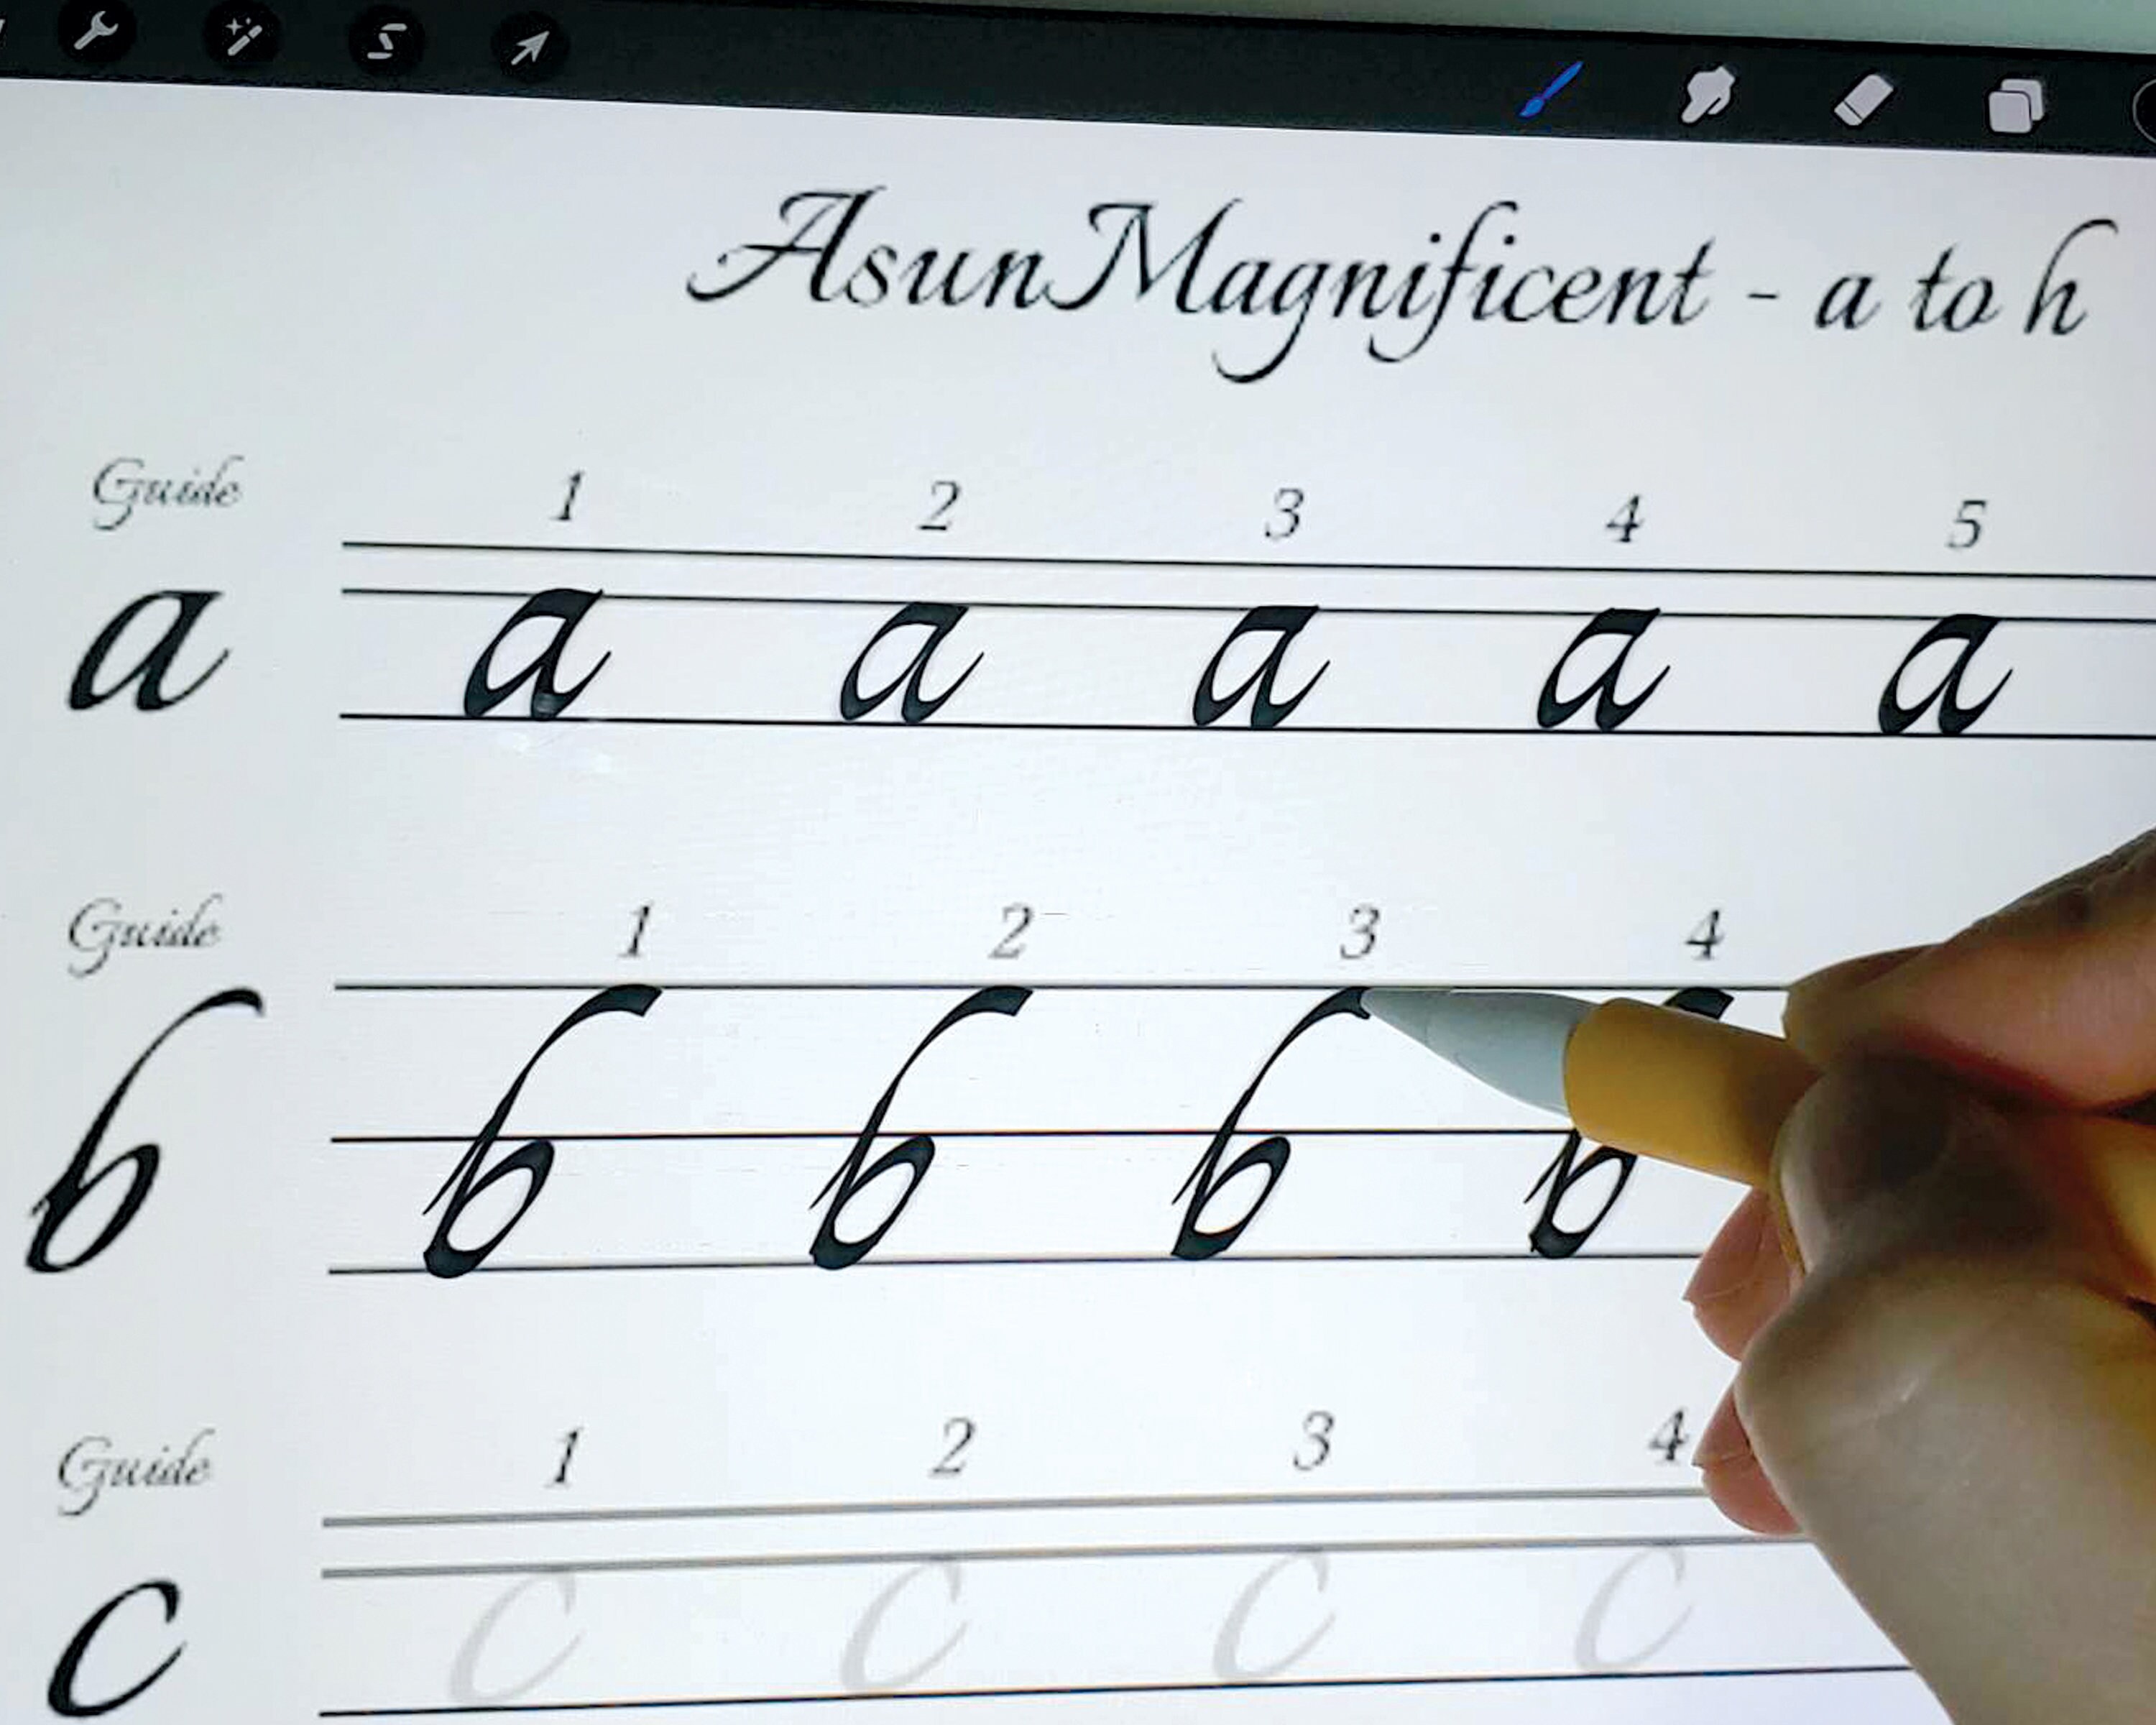 AsunMagnificent - a to h
Guide 1 2 3 4 5
a a a a a a
Guide 1 2 3 4
b b b b b
Guide 1 2 3 4
c c c c c